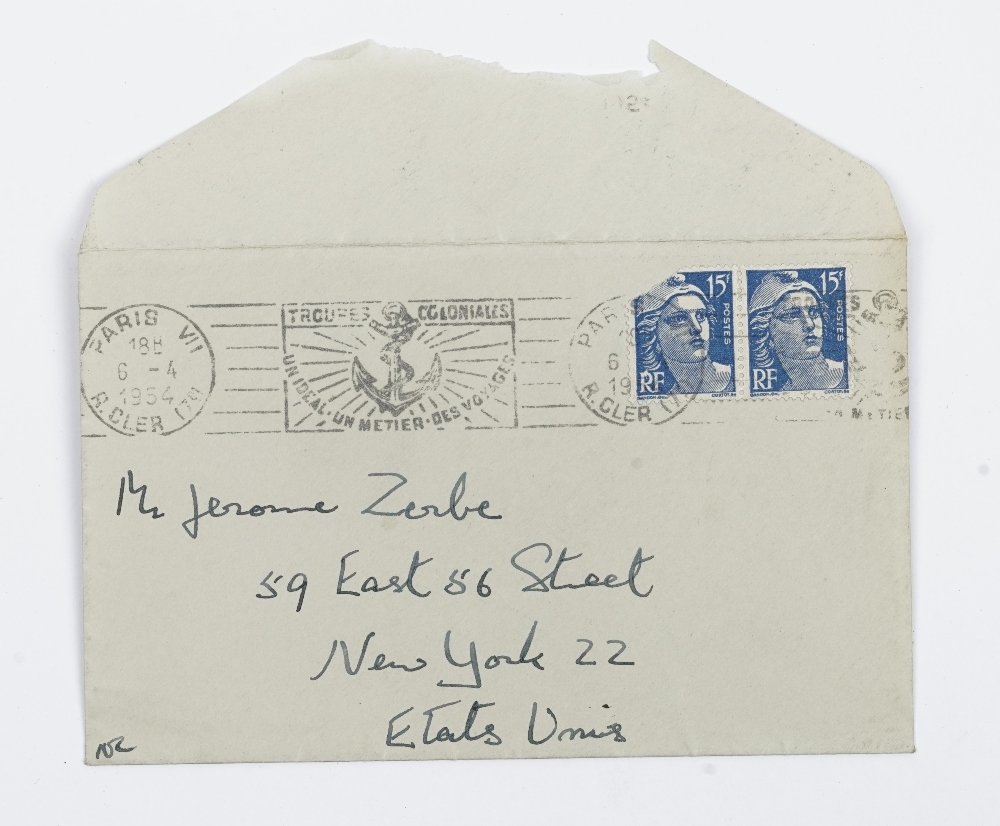 PARIS VII
18H
6 -4
1954
R.CLER (7e)
TROUPES COLONIALES
UN IDEAL·UN METIER·DES VOYAGES
PARIS
6
19
R.CLER (7
15F
POSTES
RF
15F
POSTES
RF
METIER
Mr Jerome Zerbe
59 East 56 Street
New York 22
Etats Unis